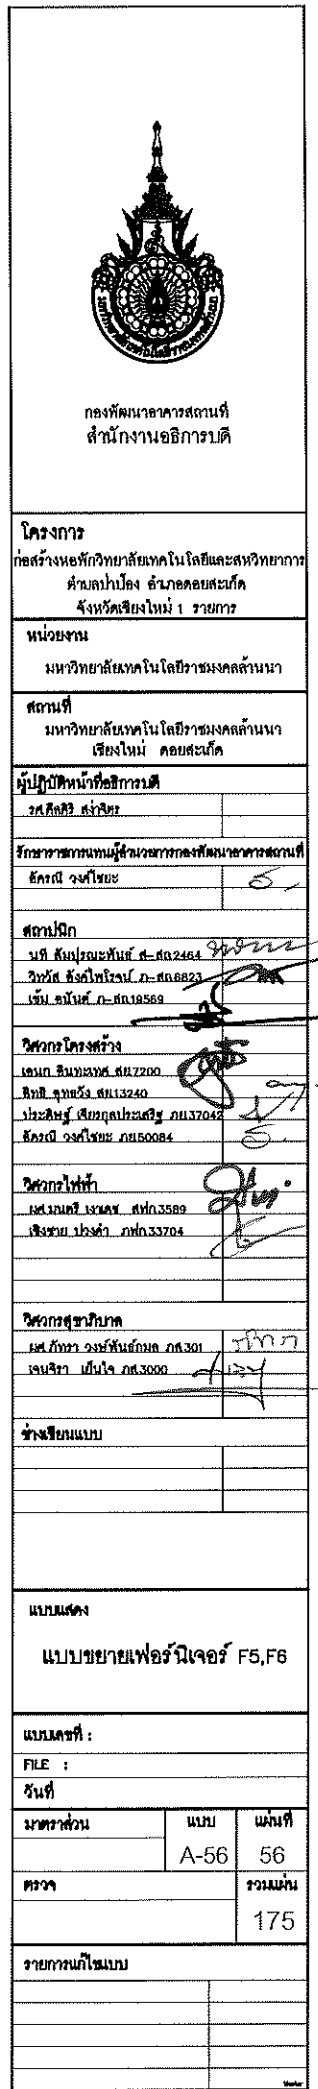 กองพัฒนาอาคารสถานที่
สำนักงานอธิการบดี
โครงการ
ก่อสร้างหอพักวิทยาลัยเทคโนโลยีและสหวิทยาการ
ตำบลป่าป้อง อำเภอดอยสะเก็ด
จังหวัดเชียงใหม่ 1 รายการ
หน่วยงาน
มหาวิทยาลัยเทคโนโลยีราชมงคลล้านนา
สถานที่
มหาวิทยาลัยเทคโนโลยีราชมงคลล้านนา
เชียงใหม่ ดอยสะเก็ด
ผู้ปฏิบัติหน้าที่อธิการบดี
รศ.ศีลศิริ สง่าจิตร
รักษาราชการแทนผู้อำนวยการกองพัฒนาอาคารสถานที่
อัครณี วงศ์ไชยะ
สถาปนิก
นที สัมปุรณะพันธ์ ส-สถ.2464
วิทวัส ภ-สถ.6823
เข้ม อนันต์ ภ-สถ.19569
วิศวกรโครงสร้าง
เอนก สินทะเทศ สย.7200
สิทธิ สย.13240
ประดิษฐ์ เจียรกุลประเสริฐ ภย.37042
อัครณี วงศ์ไชยะ ภย.50084
วิศวกรไฟฟ้า
ผศ.มนตรี เงาเดช สฟก.3589
เชิงชาย ปวงคำ ภฟก.33704
วิศวกรสุขาภิบาล
ผศ.ภัทรา วงษ์พันธ์กมล ภส.301
เจนจิรา เย็นใจ ภส.3000
ช่างเขียนแบบ
แบบแสดง
แบบขยายเฟอร์นิเจอร์ F5,F6
แบบเลขที่ :
FILE :
วันที่
มาตราส่วน แบบ แผ่นที่
A-56 56
ตรวจ รวมแผ่น
175
รายการแก้ไขแบบ